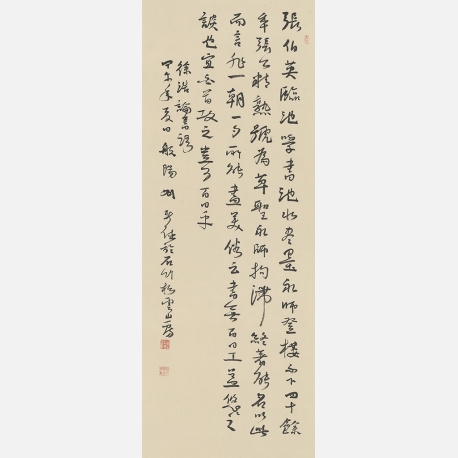 張伯英臨池學書池水盡墨永師登樓不下四十餘
年張公精熟號為草聖永師拘滯終著能名以此
而言非一朝一夕所能盡美俗云書無百日工蓋悠悠之
談也宜白首攻之豈可百日乎
徐浩論書語
甲午年夏日般陽